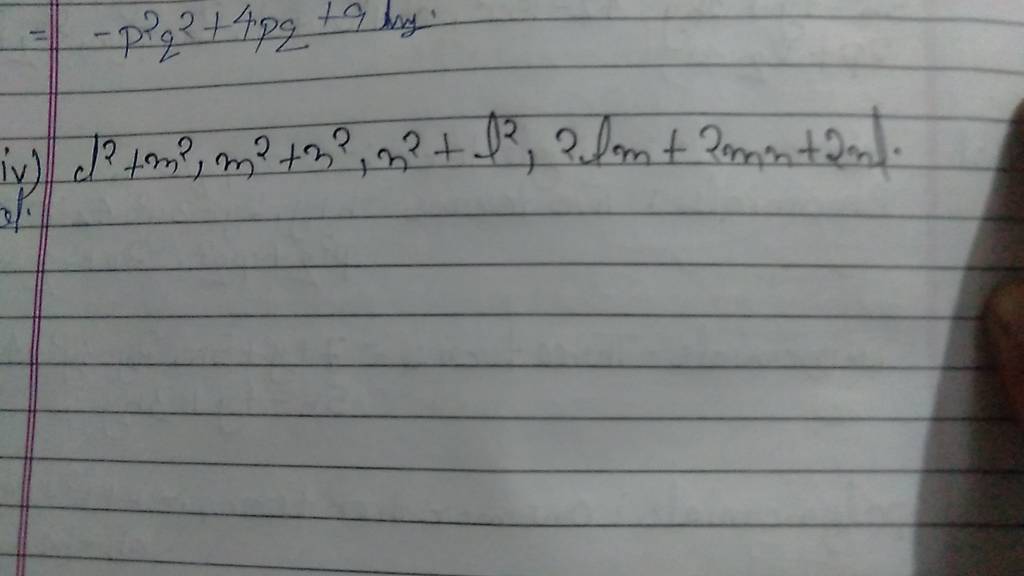 = -p²q² + 4pq + 9 Ans.
iv) l² + m², m² + n², n² + l², 2lm + 2mn + 2nl.
ol.